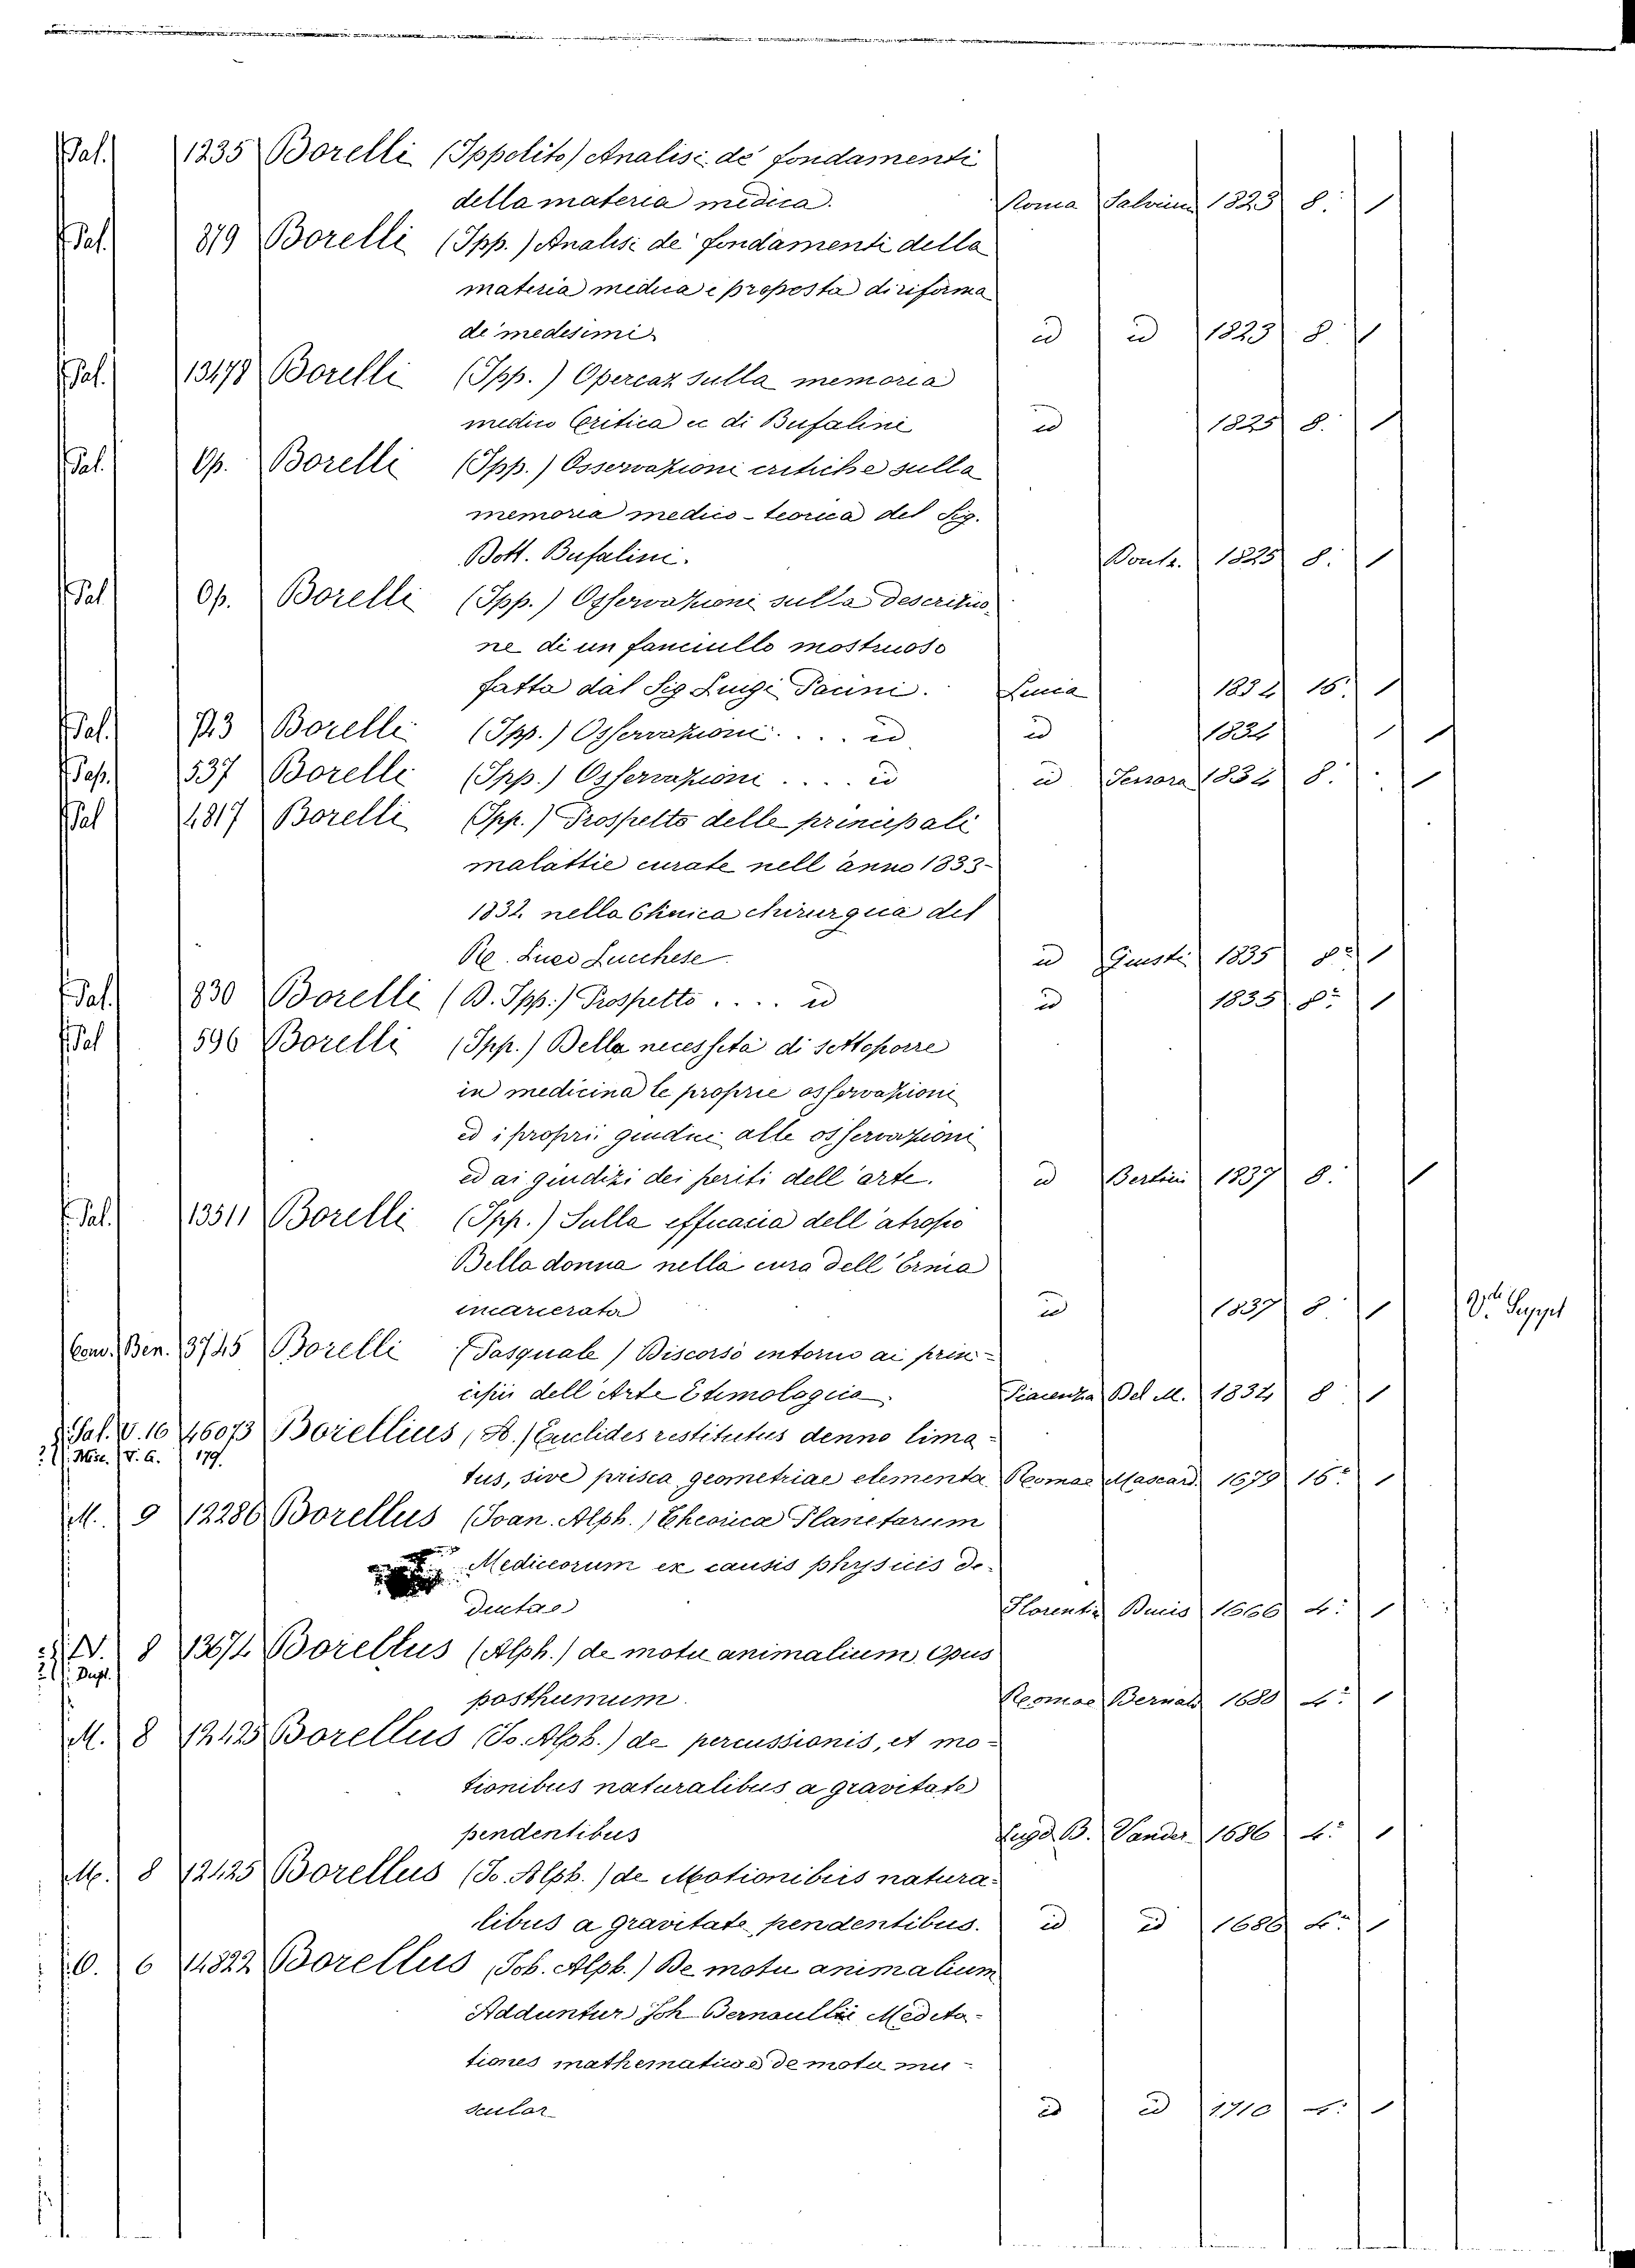 Pal. 1235 Borelli (Ippolito) Analisi de' fondamenti
della materia medica. Roma Salviucci 1823 8. 1
Pal. 819 Borelli (Ipp.) Analisi de' fondamenti della
materia medica e proposta di riforma
de' medesimi id id 1823 8. 1
Pal. 13178 Borelli (Ipp.) sulla memoria
medico Critica di Bufalini id 1825 8. 1
Pal. Op. Borelli (Ipp.) Osservazioni critiche sulla
memoria medico-teorica del Sig.
Dott. Bufalini. 1825 8. 1
Pal Op. Borelli (Ipp.) Osservazioni sulla descrizio-
ne di un fanciullo mostruoso
fatta dal Sig Luigi Pacini. Lucca 1834 1
Pal. Borelli (Ipp.) Osservazioni . . . . id id 1834 1 1
537 Borelli (Ipp.) Osservazioni . . . . id id 1834 8. 1
Pal 4817 Borelli (Ipp.) Prospetto delle principali
malattie curate nell'anno 1833-
1834 nella Clinica chirurgica del
R. Liceo Lucchese id Giusti 1835 8.° 1
Pal. 830 Borelli (D. Ipp.) Prospetto . . . . id id 1835 8.° 1
Pal 596 Borelli (Ipp.) Della necessità di sottoporre
in medicina le proprie osservazioni
ed i propri giudici alle osservazioni
ed ai giudizi dei periti dell'arte. id Bertini 1837 8. 1
Pal. 13511 Borelli (Ipp.) Sulla efficacia dell'
Bella donna nella cura dell'Ernia
incarcerata id 1837 8. 1 Suppl
Ben. 3745 Borelli (Pasquale) Discorso intorno ai prin-
cipii dell'Arte Etimologica. Piacenza Del M. 1834 8 1
Pal. V. 16 46073 Borellius, Euclides restitutus denno lima-
Misc. V. G. 179.
tus, sive prisca geometriae elementa Romae Mascard. 1679 1
M. 9 12286 Borellus (Joan. Alph.) Theorica Planetarum
Mediceorum ex causis physicis de-
ductae Florentie 1666 4.° 1
N. 8 Borellus (Alph.) de motu animalium, Opus
Dupl.
posthumum. Romae Bernab 1680 4.° 1
M. 8 12425 Borellus (Jo. Alph.) de percussionis, et mo-
tionibus naturalibus a gravitate
pendentibus Lugd. B. Vander 1686 4.° 1
M. 8 12425 Borellus (Jo. Alph.) de Motionibus natura-
libus a gravitate pendentibus. id id 1686 4.° 1
O. 6 14822 Borellus (Joh. Alph.) De motu animalium
Adduntur Joh Bernoullii Medita-
tiones mathematicae de motu mu-
scular id id 1710 4.° 1